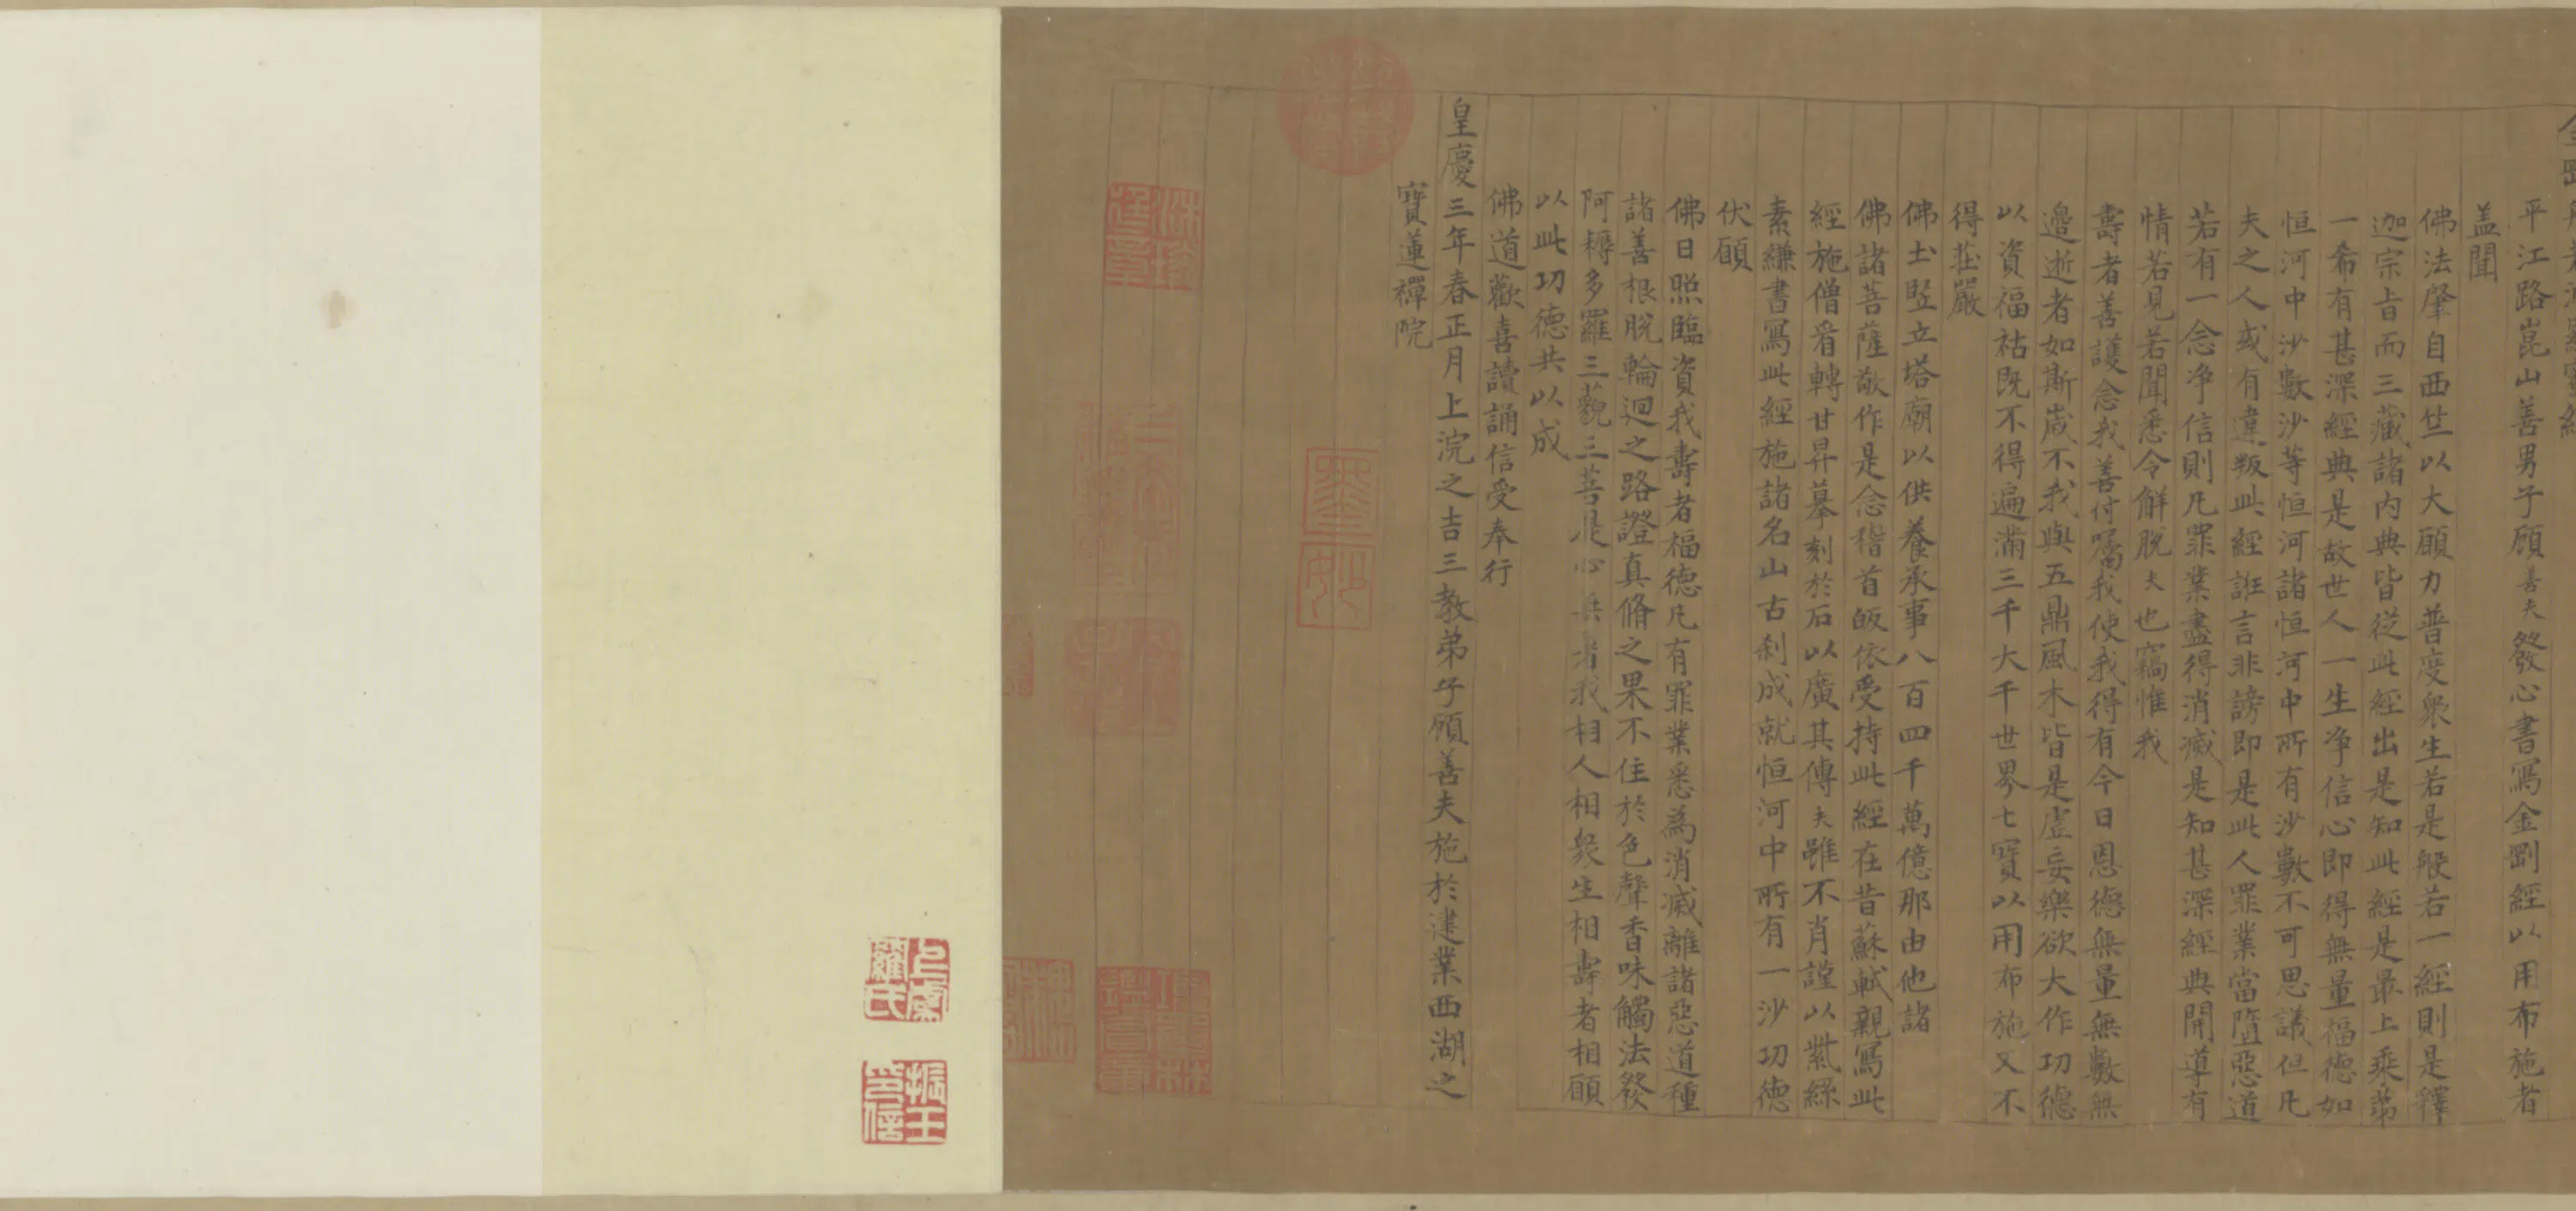 平江路崑山善男子顧善夫發心書寫金剛經以用布施者
蓋聞
佛法肇自西竺以大願力普度衆生若是般若一經則是釋
迦宗旨而三藏諸内典皆從此經出是知此經是最上乘第
一希有甚深經典是故世人一生淨信心即得無量福德如
恒河中沙數沙等恒河諸恒河中所有沙數不可思議但凡
夫之人或有違叛此經誑言非謗即是此人罪業當墮惡道
若有一念净信則凡罪業盡得消滅是知甚深經典開導有
情若見若聞悉令解脫夫也竊惟我
壽者善護念我善付囑我使我得有今日恩德無量無數無
邊逝者如斯歲不我與五鼎風木皆是虛妄樂欲大作功德
以資福祜既不得遍滿三千大千世界七寶以用布施又不
得莊嚴
佛土竪立塔廟以供養承事八百四千萬億那由他諸
佛諸菩薩敬作是念稽首皈依受持此經在昔蘇軾親寫此
經施僧看轉甘昇摹刻於石以廣其傳夫雖不肖謹以紫絲
素縑書寫此經施諸名山古刹成就恒河中所有一沙功德
伏願
佛日照臨資我壽者福德凡有罪業悉為消滅離諸惡道種
諸善根脫輪迴之路證真脩之果不住於色聲香味觸法發
阿耨多羅三藐三菩提心無我相人相衆生相壽者相願
以此功德共以成
佛道歡喜讀誦信受奉行
皇慶三年春正月上浣之吉三教弟子顧善夫施於建業西湖之
寶蓮禪院
上虞羅氏
振玉印信